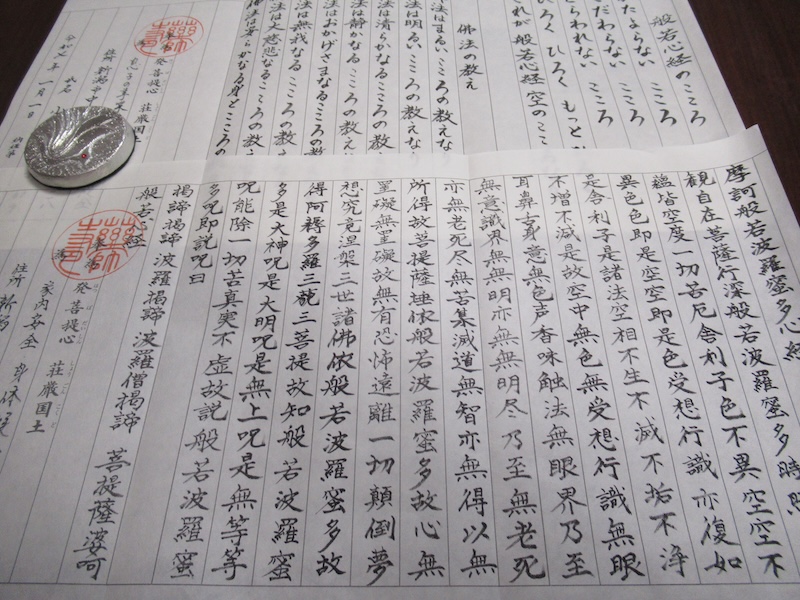 般若心経のこころ
たよらない こころ
だわらない こころ
らわれない こころ
ろく ひろく もっと
れが 般若心経 空のここ
佛法の教え
法はまるい こころの教えな
法は明るい こころの教えな
法は清らかなる こころの教え
法は静かなる こころの教え
法はおかげさまなるこころの教え
法は無我なる こころの教え
法は大慈悲なるこころの教え
法は安らかなる身とこころの
発菩提心 荘厳国土
住所 新潟市中
年一月一日
摩訶般若波羅蜜多心経
観自在菩薩行深般若波羅蜜多時
蘊皆空度一切苦厄舎利子色不異空空不
異色色即是空空即是色受想行識亦復如
是舎利子是諸法空相不生不滅不垢不浄
不増不減是故空中無色無受想行識無眼
耳鼻舌身意無色声香味触法無眼界乃至
無意識界無無明亦無無明尽乃至無老死
亦無老死尽無苦集滅道無智亦無得以無
所得故菩提薩埵依般若波羅蜜多故心無
罣礙無罣礙故無有恐怖遠離一切顛倒夢
想究竟涅槃三世諸佛依般若波羅蜜多故
得阿耨多羅三藐三菩提故知般若波羅蜜
多是大神呪是大明呪是無上呪是無等等
呪能除一切苦真実不虚故説般若波羅蜜
多呪即説呪曰
掲諦掲諦 波羅掲諦 波羅僧掲諦 菩提薩婆訶
般若心経
発菩提心 荘厳国土
家内安全 身体
住所 新潟